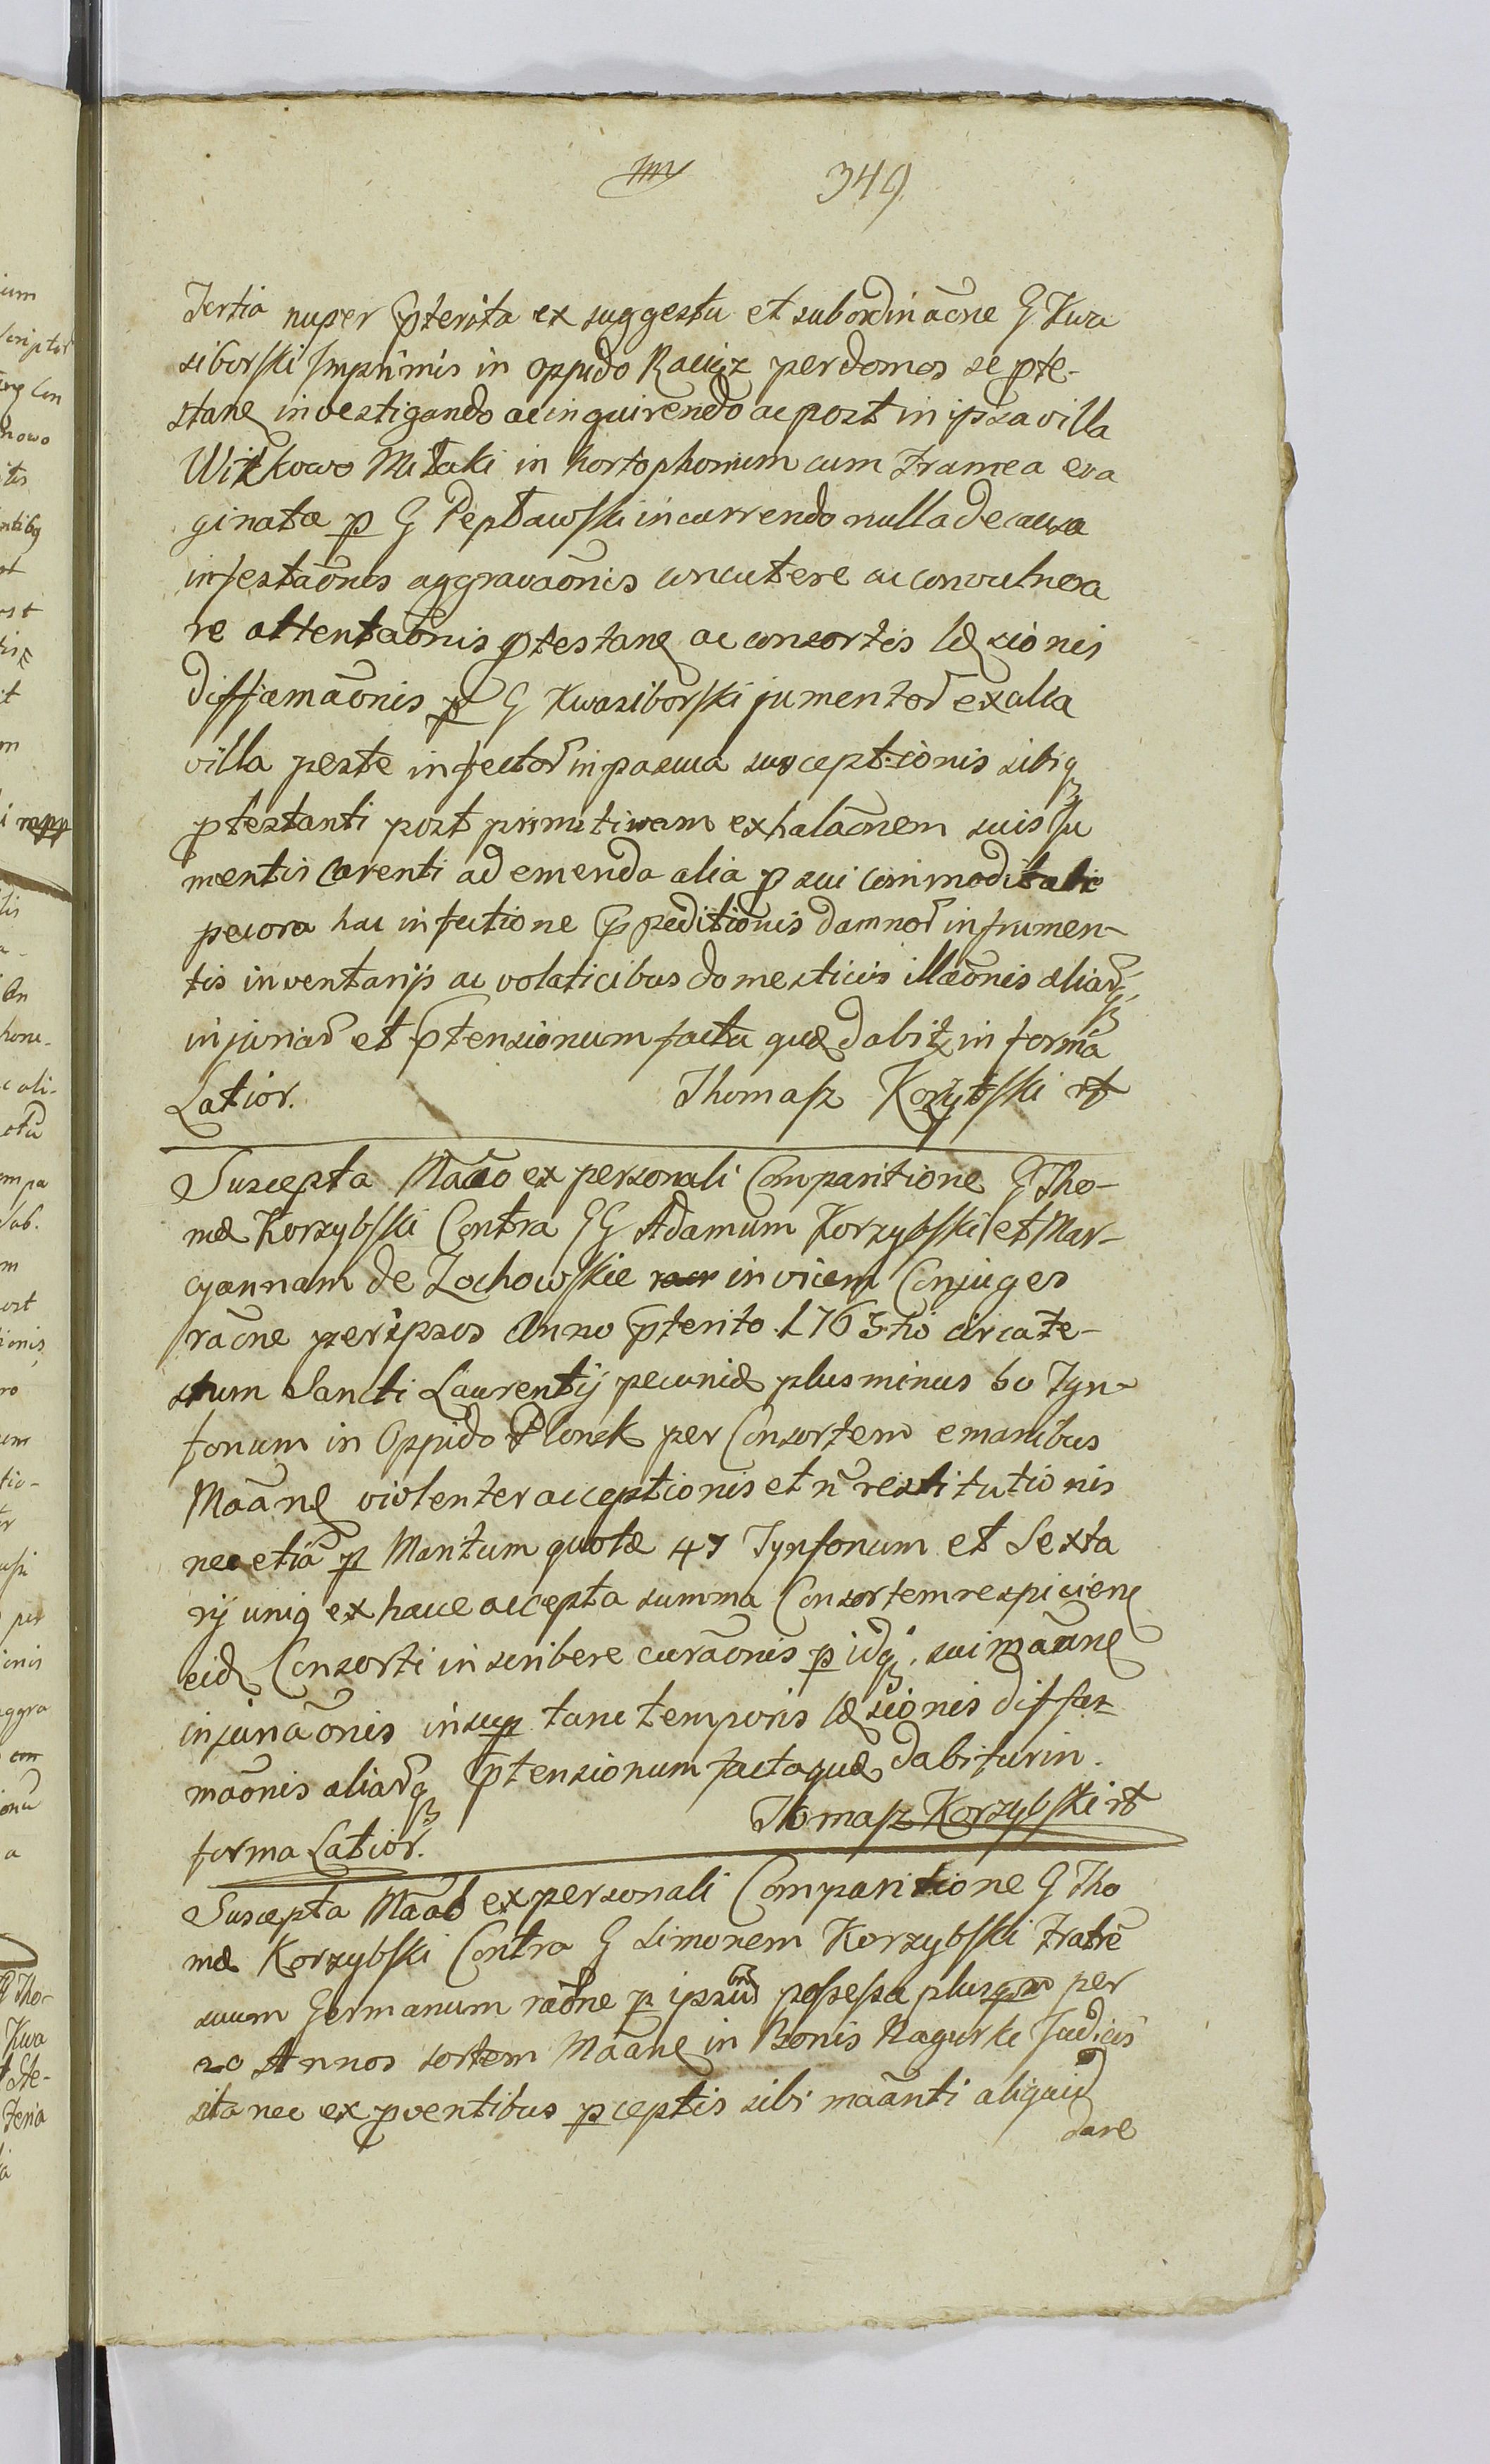 349
Tertia nuper pterita ex suggestu et subordinaõne G Kwa
siborski Imprimis in oppido Raciąz per domos se pte-
stane investigando ac inquirendo ac post in ipsa villa
Witkowo in hortophorium cum framea eva
ginata p G Peptawski incurrendo nulla de causa
infestaõnis aggravaõnis concutere ac convulnera
re attentaõnis ptestane ac consortis læsionis
diffamaõnis p G Kwasiborski jumentor ex alia
villa peste infector in pascua susceptionis sibiq
ptestanti post primitivam exhalaõnem suis Ju
mentis Carenti ad emenda alia p sui commoditate
pecora hac infectione ppeditionis damnor in frumen-
tis inventarijs ac volaticibus domesticis illaõnis aliarq
injuriar et ptensionum facta quæ dabit in forma
Latior. Thomasz Korzybski
Suscepta Maõo ex personali Comparitione G Tho-
mæ Korzybski Contra GG Adamum Korzybski et Mar-
cyannam de Zochowskie invicem Conjuges
raõne per ipsos Anno pterito 1763tio circa fe-
stum Sancti Laurentij pecuniæ plus minus 60 Tyn-
fonum in Oppido Plonsk per Consortem e manibus
Maãne violenter acceptionis et ñ restitutionis
nec etiã p Maritum quotæ 47 Tynfonum et Sexta
rij uniq ex hacce accepta summa Consortem respiciene
eid Consorti inscribere curaõnis p idq sui maãne
injuriaõnis insup tunc temporis læsionis diffa-
maõnis aliarq ptensionum facta quæ dabitur in
forma Latior. Tomasz Korzybski
Suscepta Maão ex personali Comparitione G Tho
mæ Korzybski Contra G Simonem Korzybski fratrẽ
suum Germanum raõne p ipsum possessa plusqm per
20 Annos sortem Maãne in Bonis Nagurki
sita nec ex pventibus pceptis sibi maãnti aliquid
dare